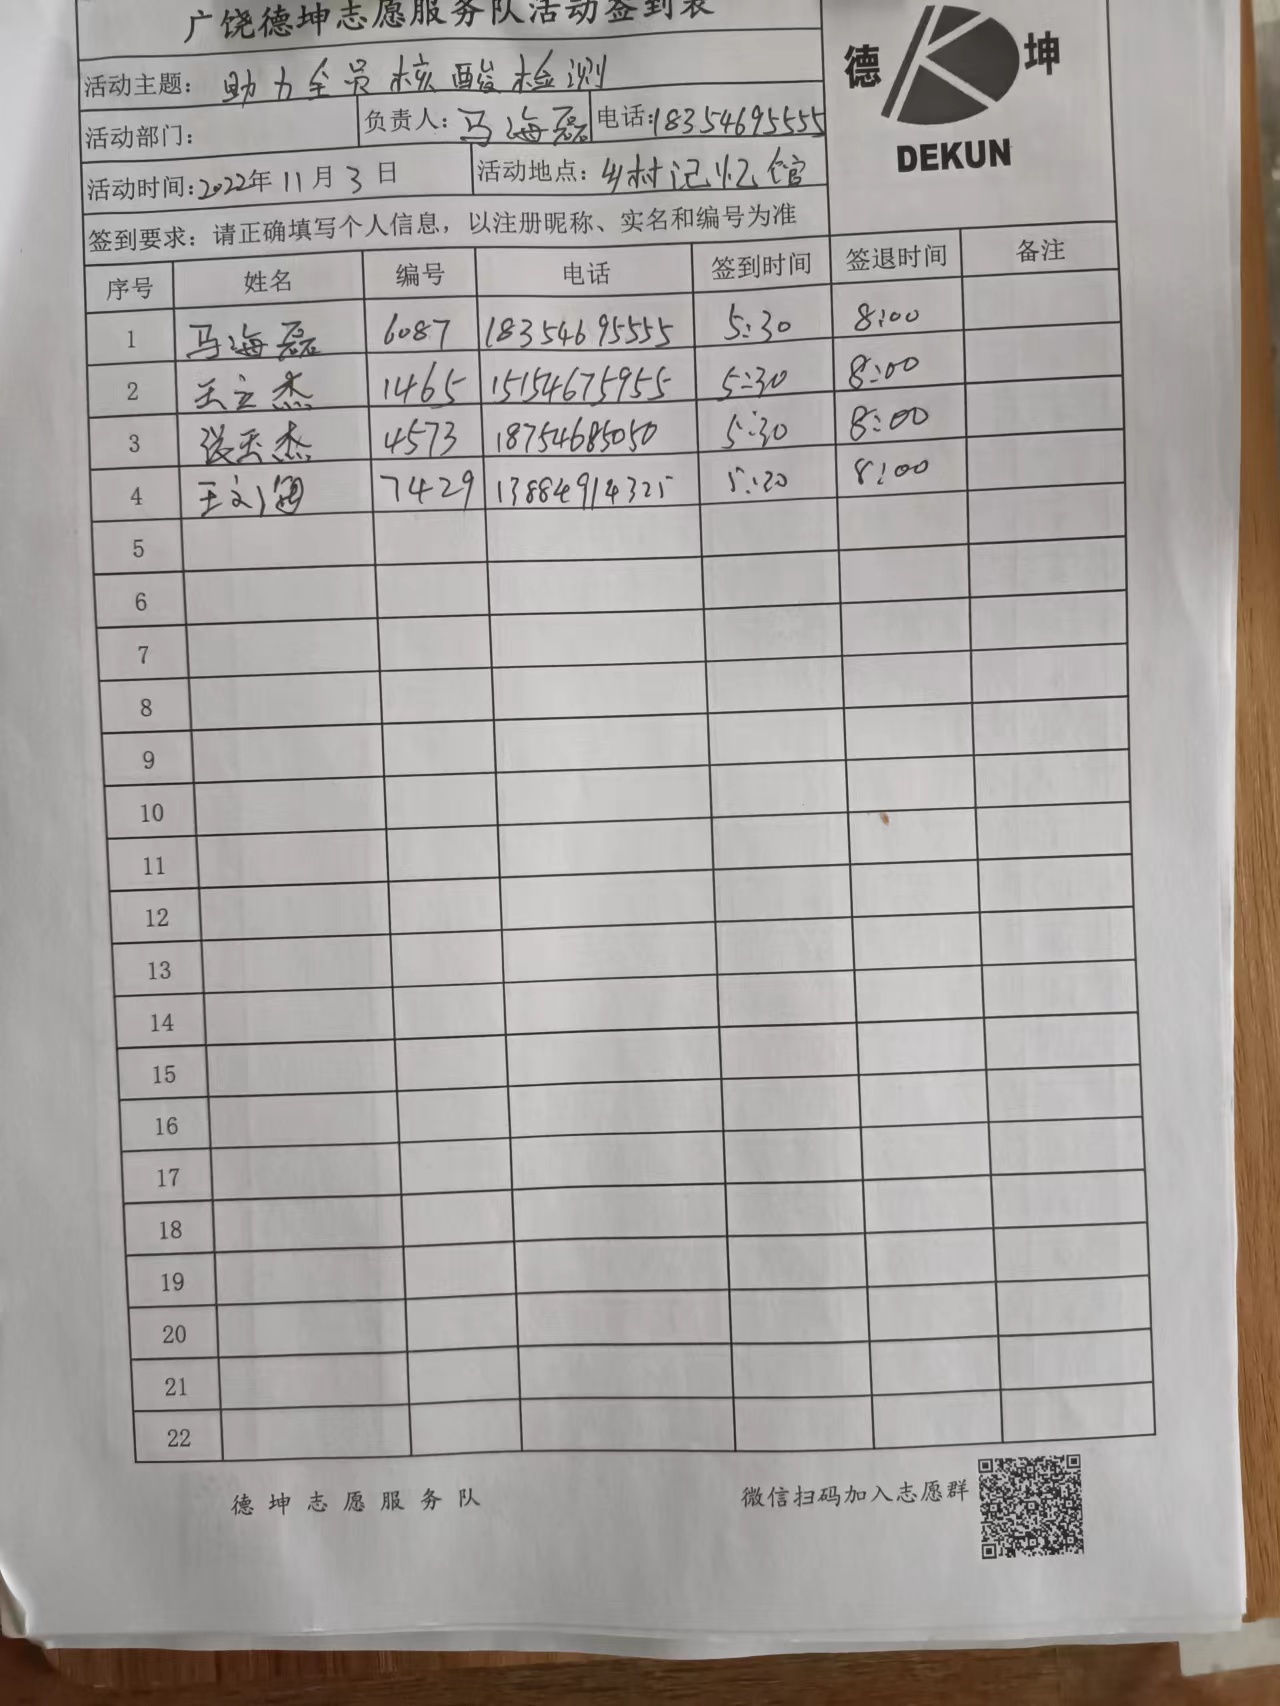 广饶德坤志愿服务队活动签到表
德 坤
DEKUN
活动主题: 助力全员核酸检测
活动部门: 负责人: 马海磊 电话: 18354695555
活动时间: 2022年11月3日 活动地点: 乡村记忆馆
签到要求: 请正确填写个人信息, 以注册昵称、实名和编号为准
序号 姓名 编号 电话 签到时间 签退时间 备注
1 马海磊 6087 18354695555 5:30 8:00
2 王立杰 1465 15154675955 5:30 8:00
3 张玉杰 4573 18754685050 5:30 8:00
4 王文 7429 13884914325 5:30 8:00
5
6
7
8
9
10
11
12
13
14
15
16
17
18
19
20
21
22
德坤志愿服务队 微信扫码加入志愿群